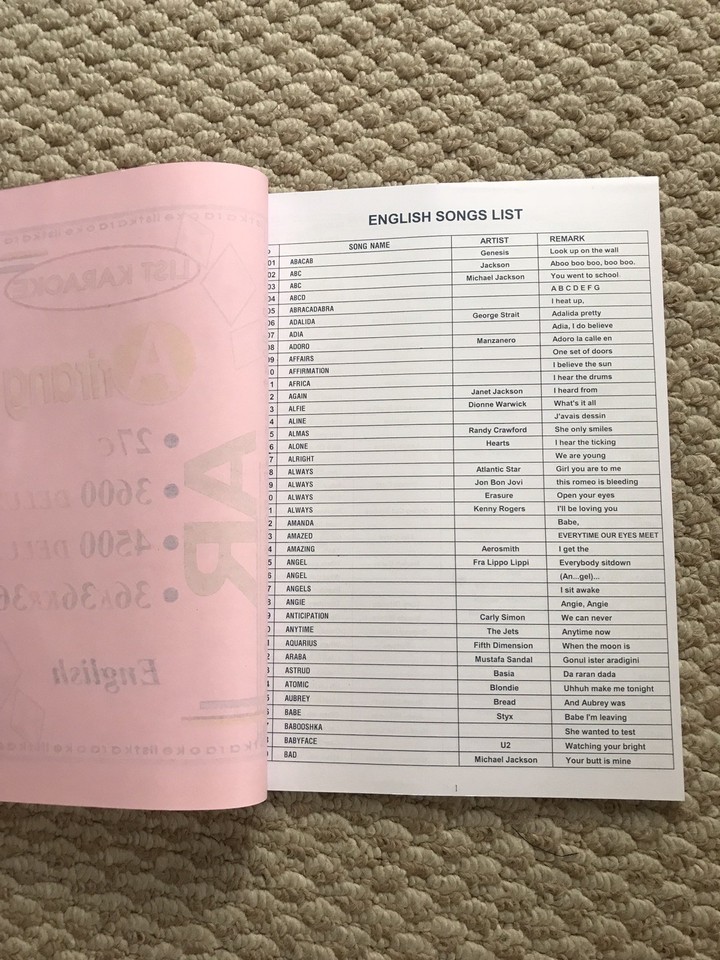 LIST KARAOKE
Arirang
AR
27c
3600 DELU
4500 DEL
English
ENGLISH SONGS LIST
O SONG NAME ARTIST REMARK
01 ABACAB Genesis Look up on the wall
02 ABC Jackson Aboo boo boo, boo boo.
03 ABC Michael Jackson You went to school
04 ABCD A B C D E F G
05 ABRACADABRA I heat up,
06 ADALIDA George Strait Adalida pretty
07 ADIA Adia, I do believe
08 ADORO Manzanero Adoro la calle en
09 AFFAIRS One set of doors
0 AFFIRMATION I believe the sun
1 AFRICA I hear the drums
2 AGAIN Janet Jackson I heard from
3 ALFIE Dionne Warwick What's it all
4 ALINE J'avais dessin
5 ALMAS Randy Crawford She only smiles
6 ALONE Hearts I hear the ticking
7 ALRIGHT We are young
8 ALWAYS Atlantic Star Girl you are to me
9 ALWAYS Jon Bon Jovi this romeo is bleeding
0 ALWAYS Erasure Open your eyes
1 ALWAYS Kenny Rogers I'll be loving you
2 AMANDA Babe,
3 AMAZED EVERYTIME OUR EYES MEET
4 AMAZING Aerosmith I get the
5 ANGEL Fra Lippo Lippi Everybody sitdown
6 ANGEL (An...gel)...
7 ANGELS I sit awake
8 ANGIE Angie, Angie
9 ANTICIPATION Carly Simon We can never
ANYTIME The Jets Anytime now
AQUARIUS Fifth Dimension When the moon is
ARABA Mustafa Sandal Gonul ister aradigini
ASTRUD Basia Da raran dada
ATOMIC Blondie Uhhuh make me tonight
AUBREY Bread And Aubrey was
BABE Styx Babe I'm leaving
BABOOSHKA She wanted to test
BABYFACE U2 Watching your bright
BAD Michael Jackson Your butt is mine
1